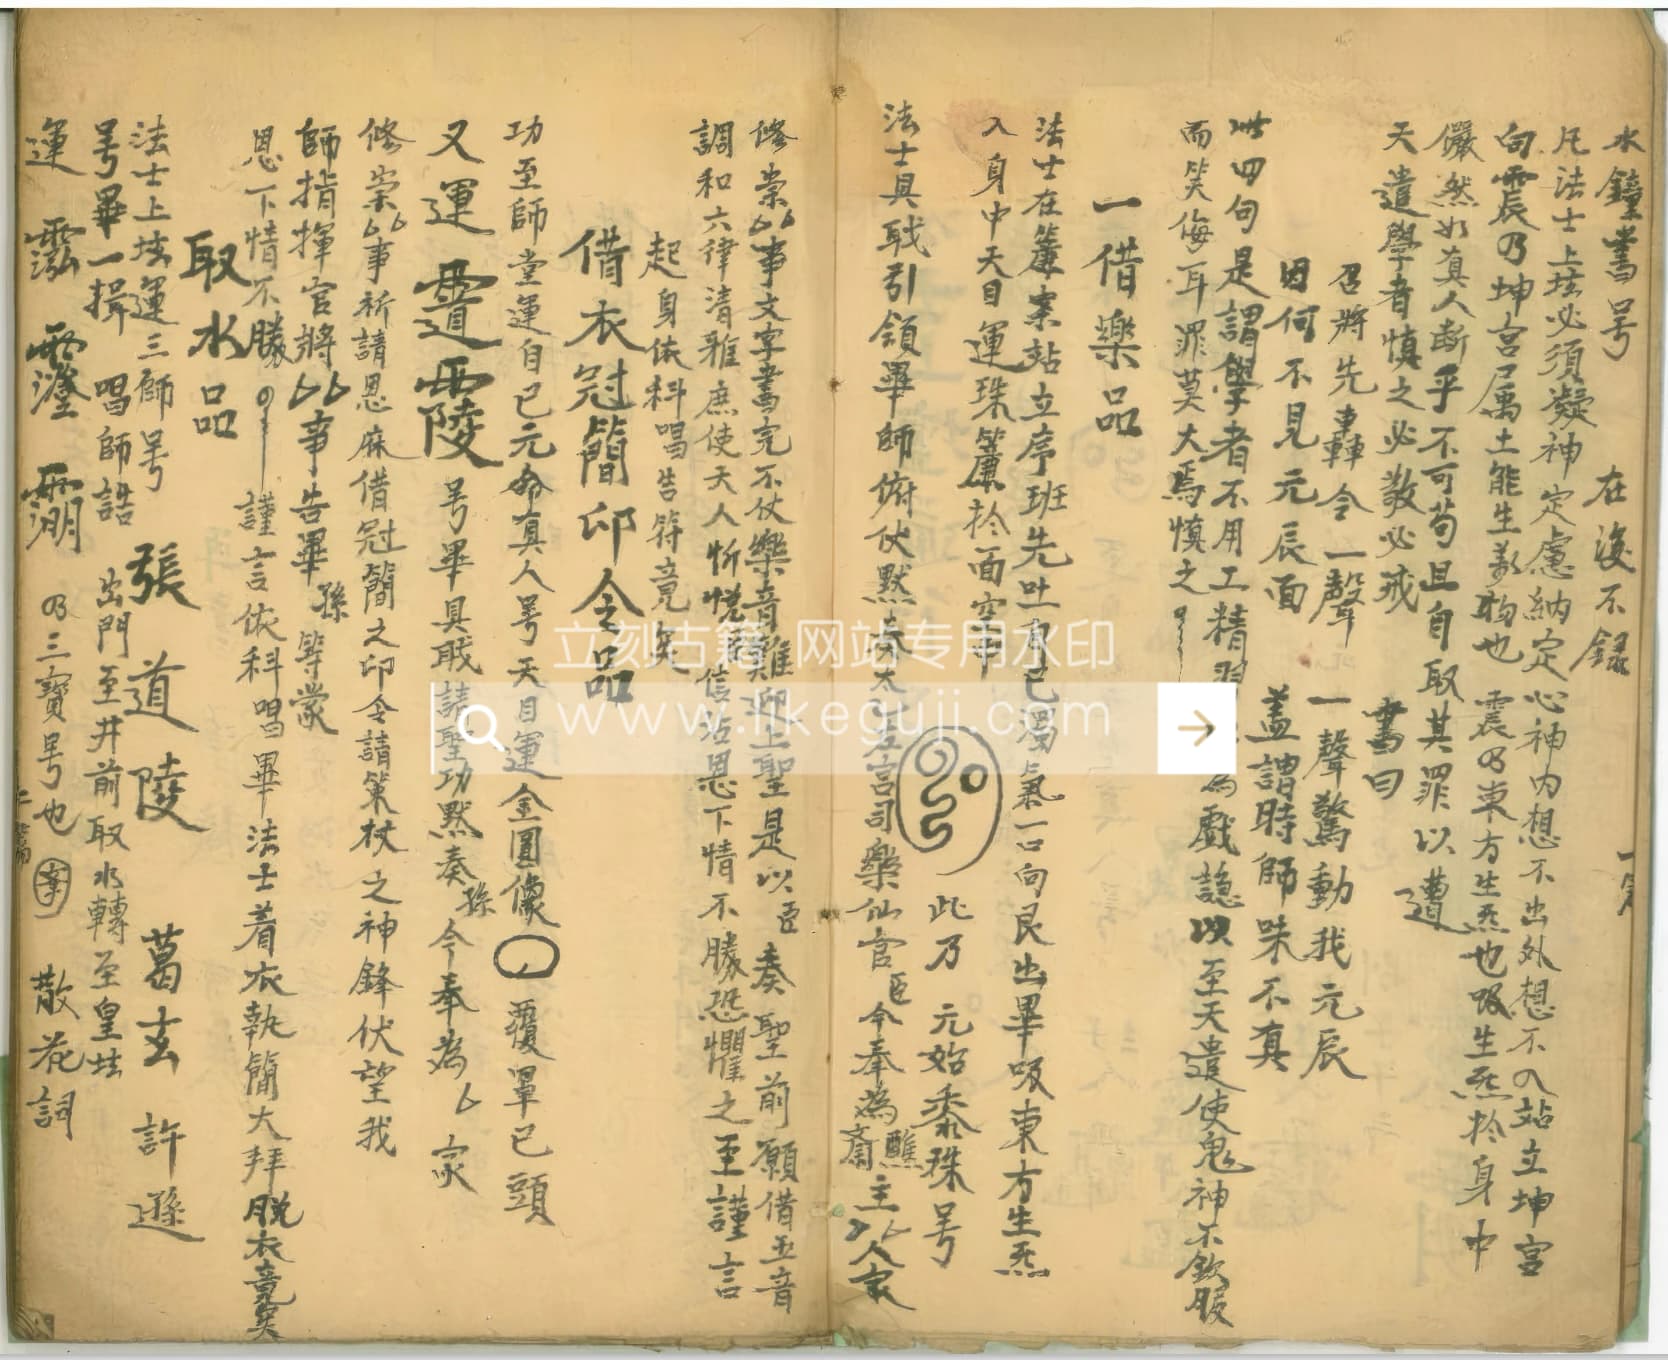 水鐘書号 在後不錄
凡法士上坛必須凝神定慮納定心神内想不出外想不入站立坤宫
向震乃坤宫属土能生万物也 震乃東方生炁也吸生炁於身中
儼然如真人斷乎不可苟且自取其罪以遭
天遣學者慎之必敬必戒 書曰
召將先轟令一聲 一聲驚動我元辰
因何不見元辰面 盖謂時師味不真
此四句是謂學者不用工精 為戲謔以至天遣使鬼神不欽服
而笑侮耳罪莫大焉慎之
一借樂品
法士在簾案站立序班先吐自己濁氣一口向艮出畢吸東方生炁
入身中天目運珠簾於面空中 此乃元始黍珠号
法士具戢引領畢師俯伏默奏太 左宫司樂仙官臣今奉為醮齋主人家
修崇 事文字書完不仗樂音難迎上聖是以臣奏聖前願借玉音
調和六律清雅庶使天人忻悅 信沾恩下情不勝恐懼之至謹言
起身依科唱告符竟矣
借衣冠簡印令品
功至師堂運自己元命真人号天目運金圓像 覆罩已頭
又運 号畢具戢請聖功默奏孫今奉為 家
修崇 事祈請恩庥借冠簡之印令請策杖之神鋒伏望我
師指揮官將 事告畢孫等蒙
恩下情不勝 謹言依科唱畢法士着衣執簡大拜脱衣竟矣
取水品
法士上坛運三師号 張道陵 葛玄 許遜
号畢一揖 唱師誥 出門至井前取水轉至皇坛
運 乃三寶号也 散花詞
立刻古籍 网站专用水印
www.likeguji.com